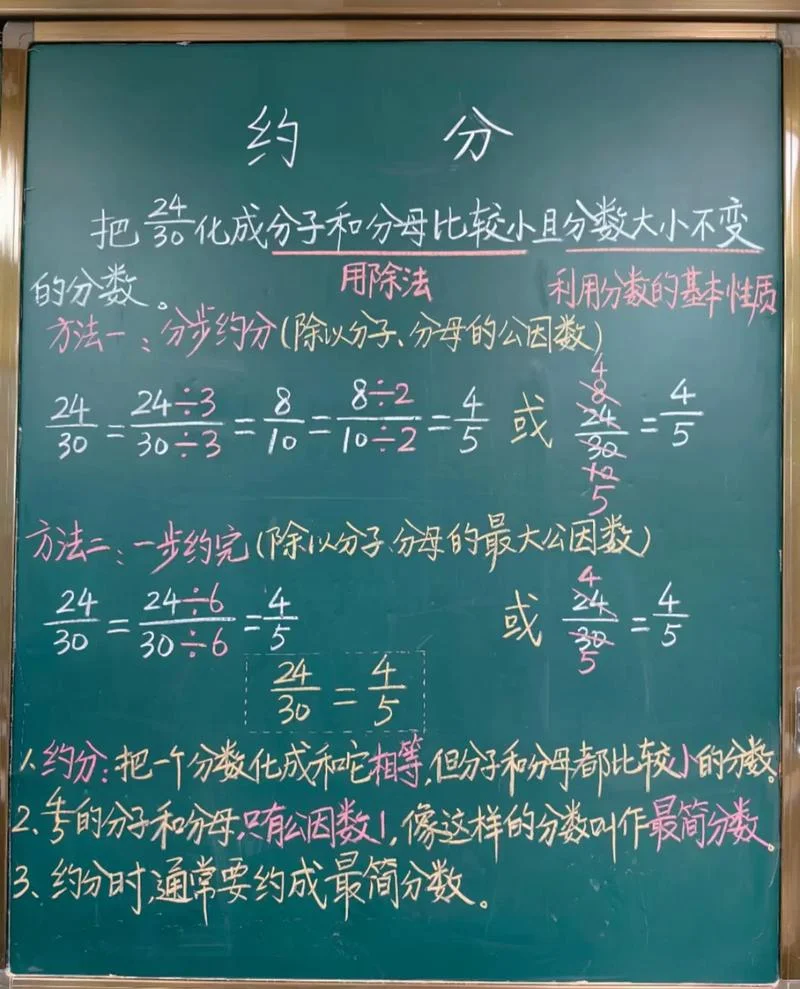 约 分
把24/30化成分子和分母比较小且分数大小不变
用除法 利用分数的基本性质
的分数。
方法一：分步约分(除以分子、分母的公因数)
24/30=24÷3/30÷3=8/10=8÷2/10÷2=4/5 或 4 8 24/30 10 5=4/5
方法二：一步约完(除以分子、分母的最大公因数)
24/30=24÷6/30÷6=4/5 或 4 24/30 5=4/5
24/30=4/5
1、约分：把一个分数化成和它相等，但分子和分母都比较小的分数。
2、4/5的分子和分母，只有公因数1，像这样的分数叫作最简分数。
3、约分时，通常要约成最简分数。